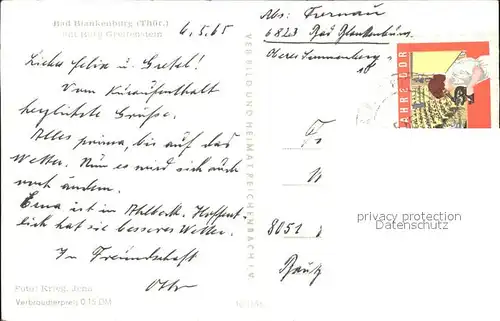 Bad Blankenburg (Thür.)
mit Burg Greifenstein
6.5.65
Lieber Felix u. Gretel!
Vom Kuraufenthalt
herzlichste Grüsse.
Alles prima, bis auf das
Wetter. Nun es wird sich auch
noch ändern.
Erna ist in Ahlbeck. Hoffent-
lich hat sie besseres Wetter.
In Freundschaft
Otto
Foto: Krieg, Jena
Verbraucherpreis 0,15 DM
VERBILD UND HEIMAT REICHENBACH I.V.
Abs:
6823 Bad Blankenburg
Oberes
18
JAHRE DDR
8051
privacy protection
Datenschutz